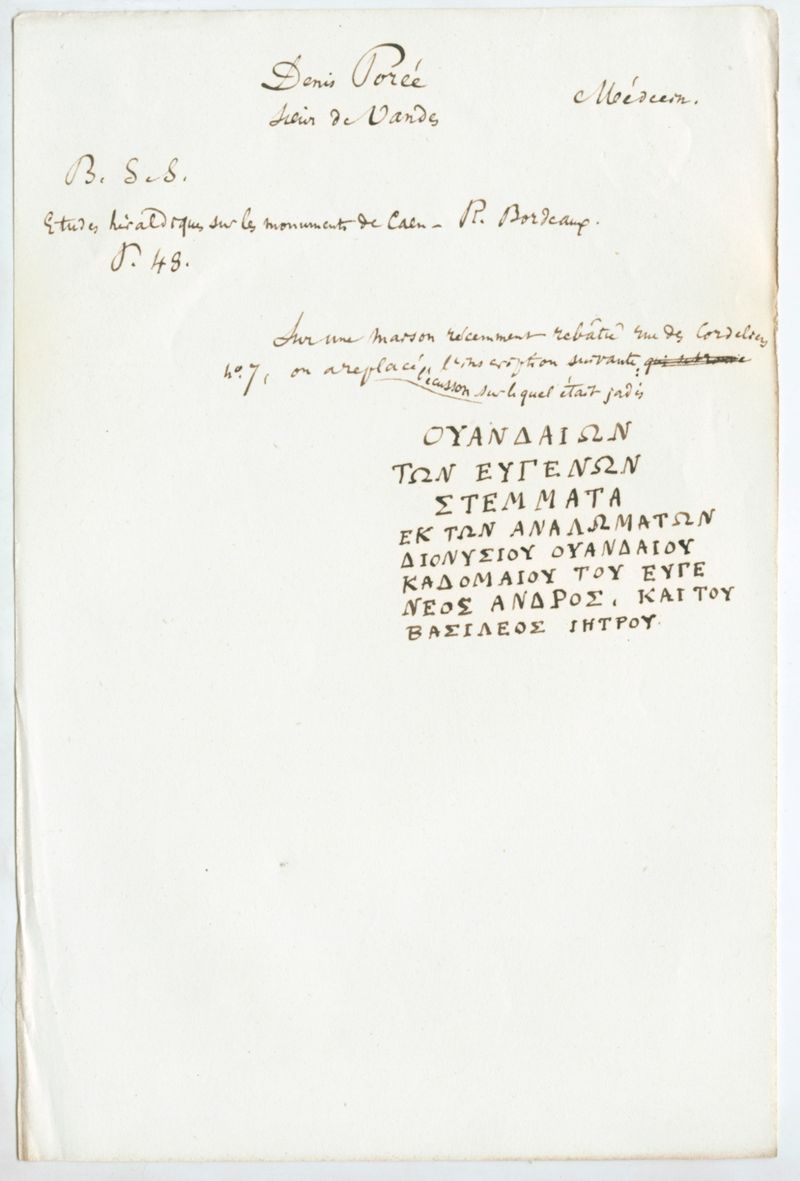 Denis Porée
Médecin.
sieur de Vandes
B. S. S.
Etudes héraldiques sur les monuments de Caen - R. Bordeaux.
P. 48.
Sur une maison récemment rebâtie rue des Cordeliers
no. 7, on a replacé l'inscription suivante,
l'écusson sur lequel était jadis
ΟΥΑΝΔΑΙΩΝ
ΤΩΝ ΕΥΓΕΝΩΝ
ΣΤΕΜΜΑΤΑ
ΕΚ ΤΩΝ ΑΝΑΛΩΜΑΤΩΝ
ΔΙΟΝΥΣΙΟΥ ΟΥΑΝΔΑΙΟΥ
ΚΑΔΟΜΑΙΟΥ ΤΟΥ ΕΥΓΕ
ΝΕΟΣ ΑΝΔΡΟΣ, ΚΑΙ ΤΟΥ
ΒΑΣΙΛΕΟΣ ΙΗΤΡΟΥ.